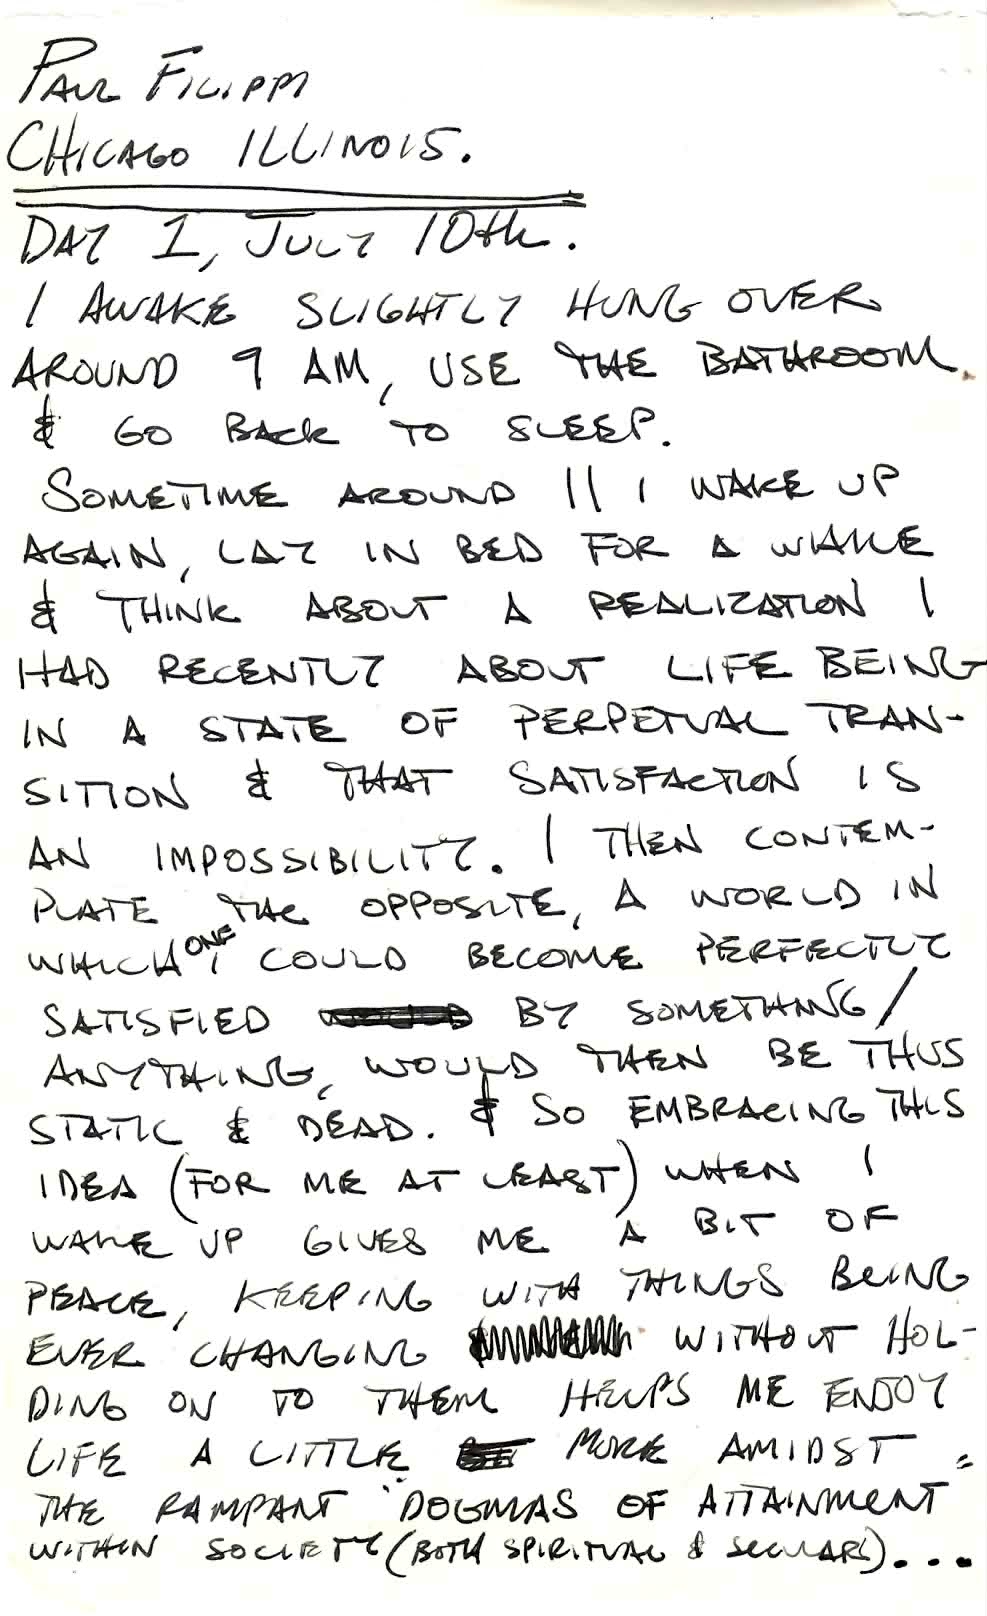 PAUL FILIPPI
CHICAGO ILLINOIS.
DAY 1, JULY 10th.
I AWAKE SLIGHTLY HUNG OVER
AROUND 9 AM, USE THE BATHROOM
& GO BACK TO SLEEP.
SOMETIME AROUND 11 I WAKE UP
AGAIN, LAY IN BED FOR A WHILE
& THINK ABOUT A REALIZATION I
HAD RECENTLY ABOUT LIFE BEING
IN A STATE OF PERPETUAL TRAN-
SITION & THAT SATISFACTION IS
AN IMPOSSIBILITY. I THEN CONTEM-
PLATE THE OPPOSITE, A WORLD IN
WHICH ONE COULD BECOME PERFECTLY
SATISFIED BY SOMETHING/
ANYTHING, WOULD THEN BE THUS
STATIC & DEAD. & SO EMBRACING THIS
IDEA (FOR ME AT LEAST) WHEN I
WAKE UP GIVES ME A BIT OF
PEACE, KEEPING WITH THINGS BEING
EVER CHANGING WITHOUT HOL-
DING ON TO THEM HELPS ME ENJOY
LIFE A LITTLE MORE AMIDST
THE RAMPANT DOGMAS OF ATTAINMENT
WITHIN SOCIETY (BOTH SPIRITUAL & SECULAR)...